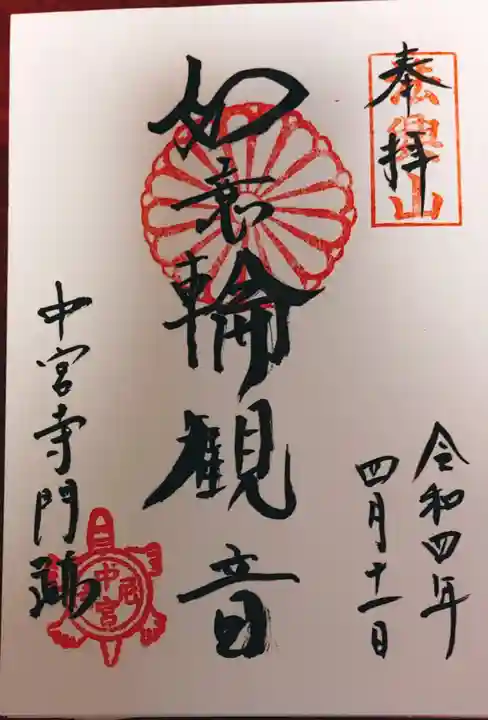 奉拝
法興山
令和四年
四月十一日
如意輪観音
中宮寺門跡
中宮